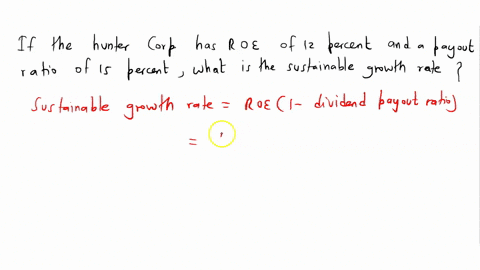 If the hunter Corp has ROE of 12 percent and a payout
ratio of 15 percent, what is the sustainable growth rate ?
Sustainable growth rate = ROE (1- dividend payout ratio)
=